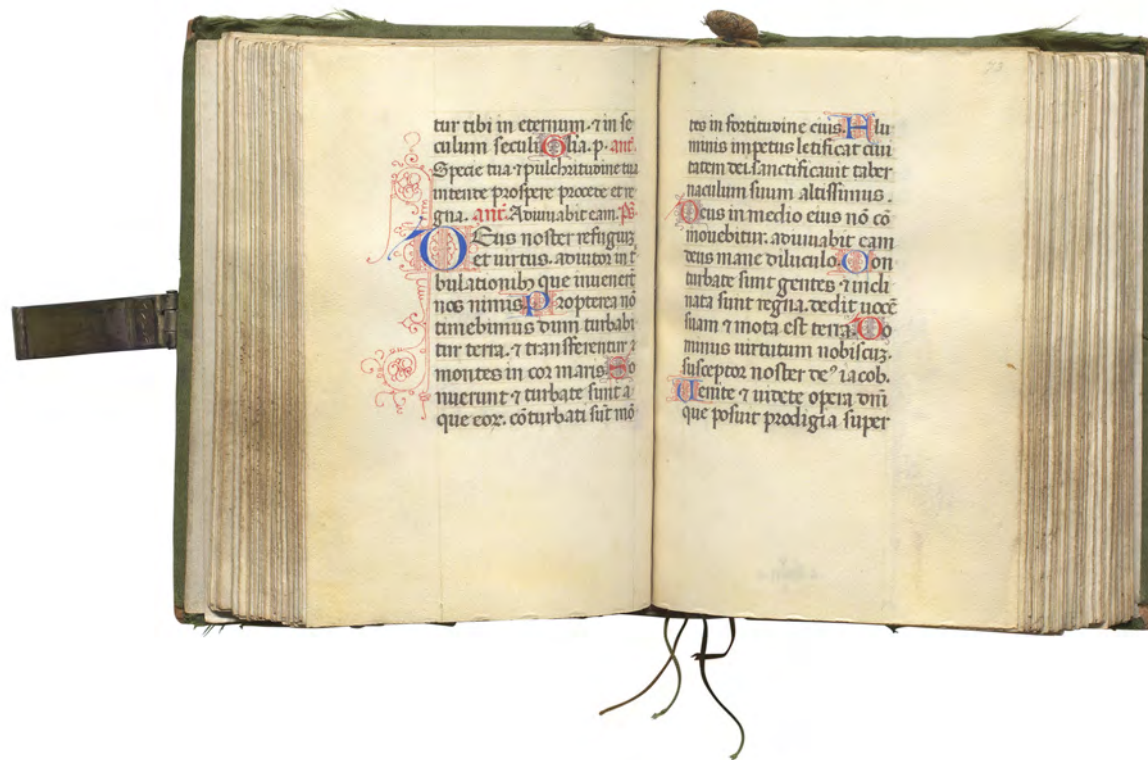 tur tibi in eternum. ⁊ in se
culum seculi Glia. p. ant.
Specie tua ⁊ pulchritudine tua
intende prospere procede et re
gna. ant. Adiuuabit eam. ps.
DEus noster refugiuz
et uirtus. adiutor in t̄
bulationibꝫ que inuenerūt
nos nimis. Propterea nō
timebimus dum turbabi
tur terra. ⁊ transferentur
montes in cor maris So
nuerunt ⁊ turbate sunt a
que eoꝝ. cōturbati sūt mō
73
tes in fortitudine eius. Flu
minis impetus letificat ciui
tatem dei. sanctificauit taber
naculum suum altissimus.
Deus in medio eius nō cō
mouebitur. adiuuabit eam
deus mane diluculo. Con
turbate sunt gentes ⁊ incli
nata sunt regna. dedit uocē
suam ⁊ mota est terra. Do
minus uirtutum nobiscuz.
susceptor noster deꝰ iacob.
Uenite ⁊ uidete opera dnī
que posuit prodigia super